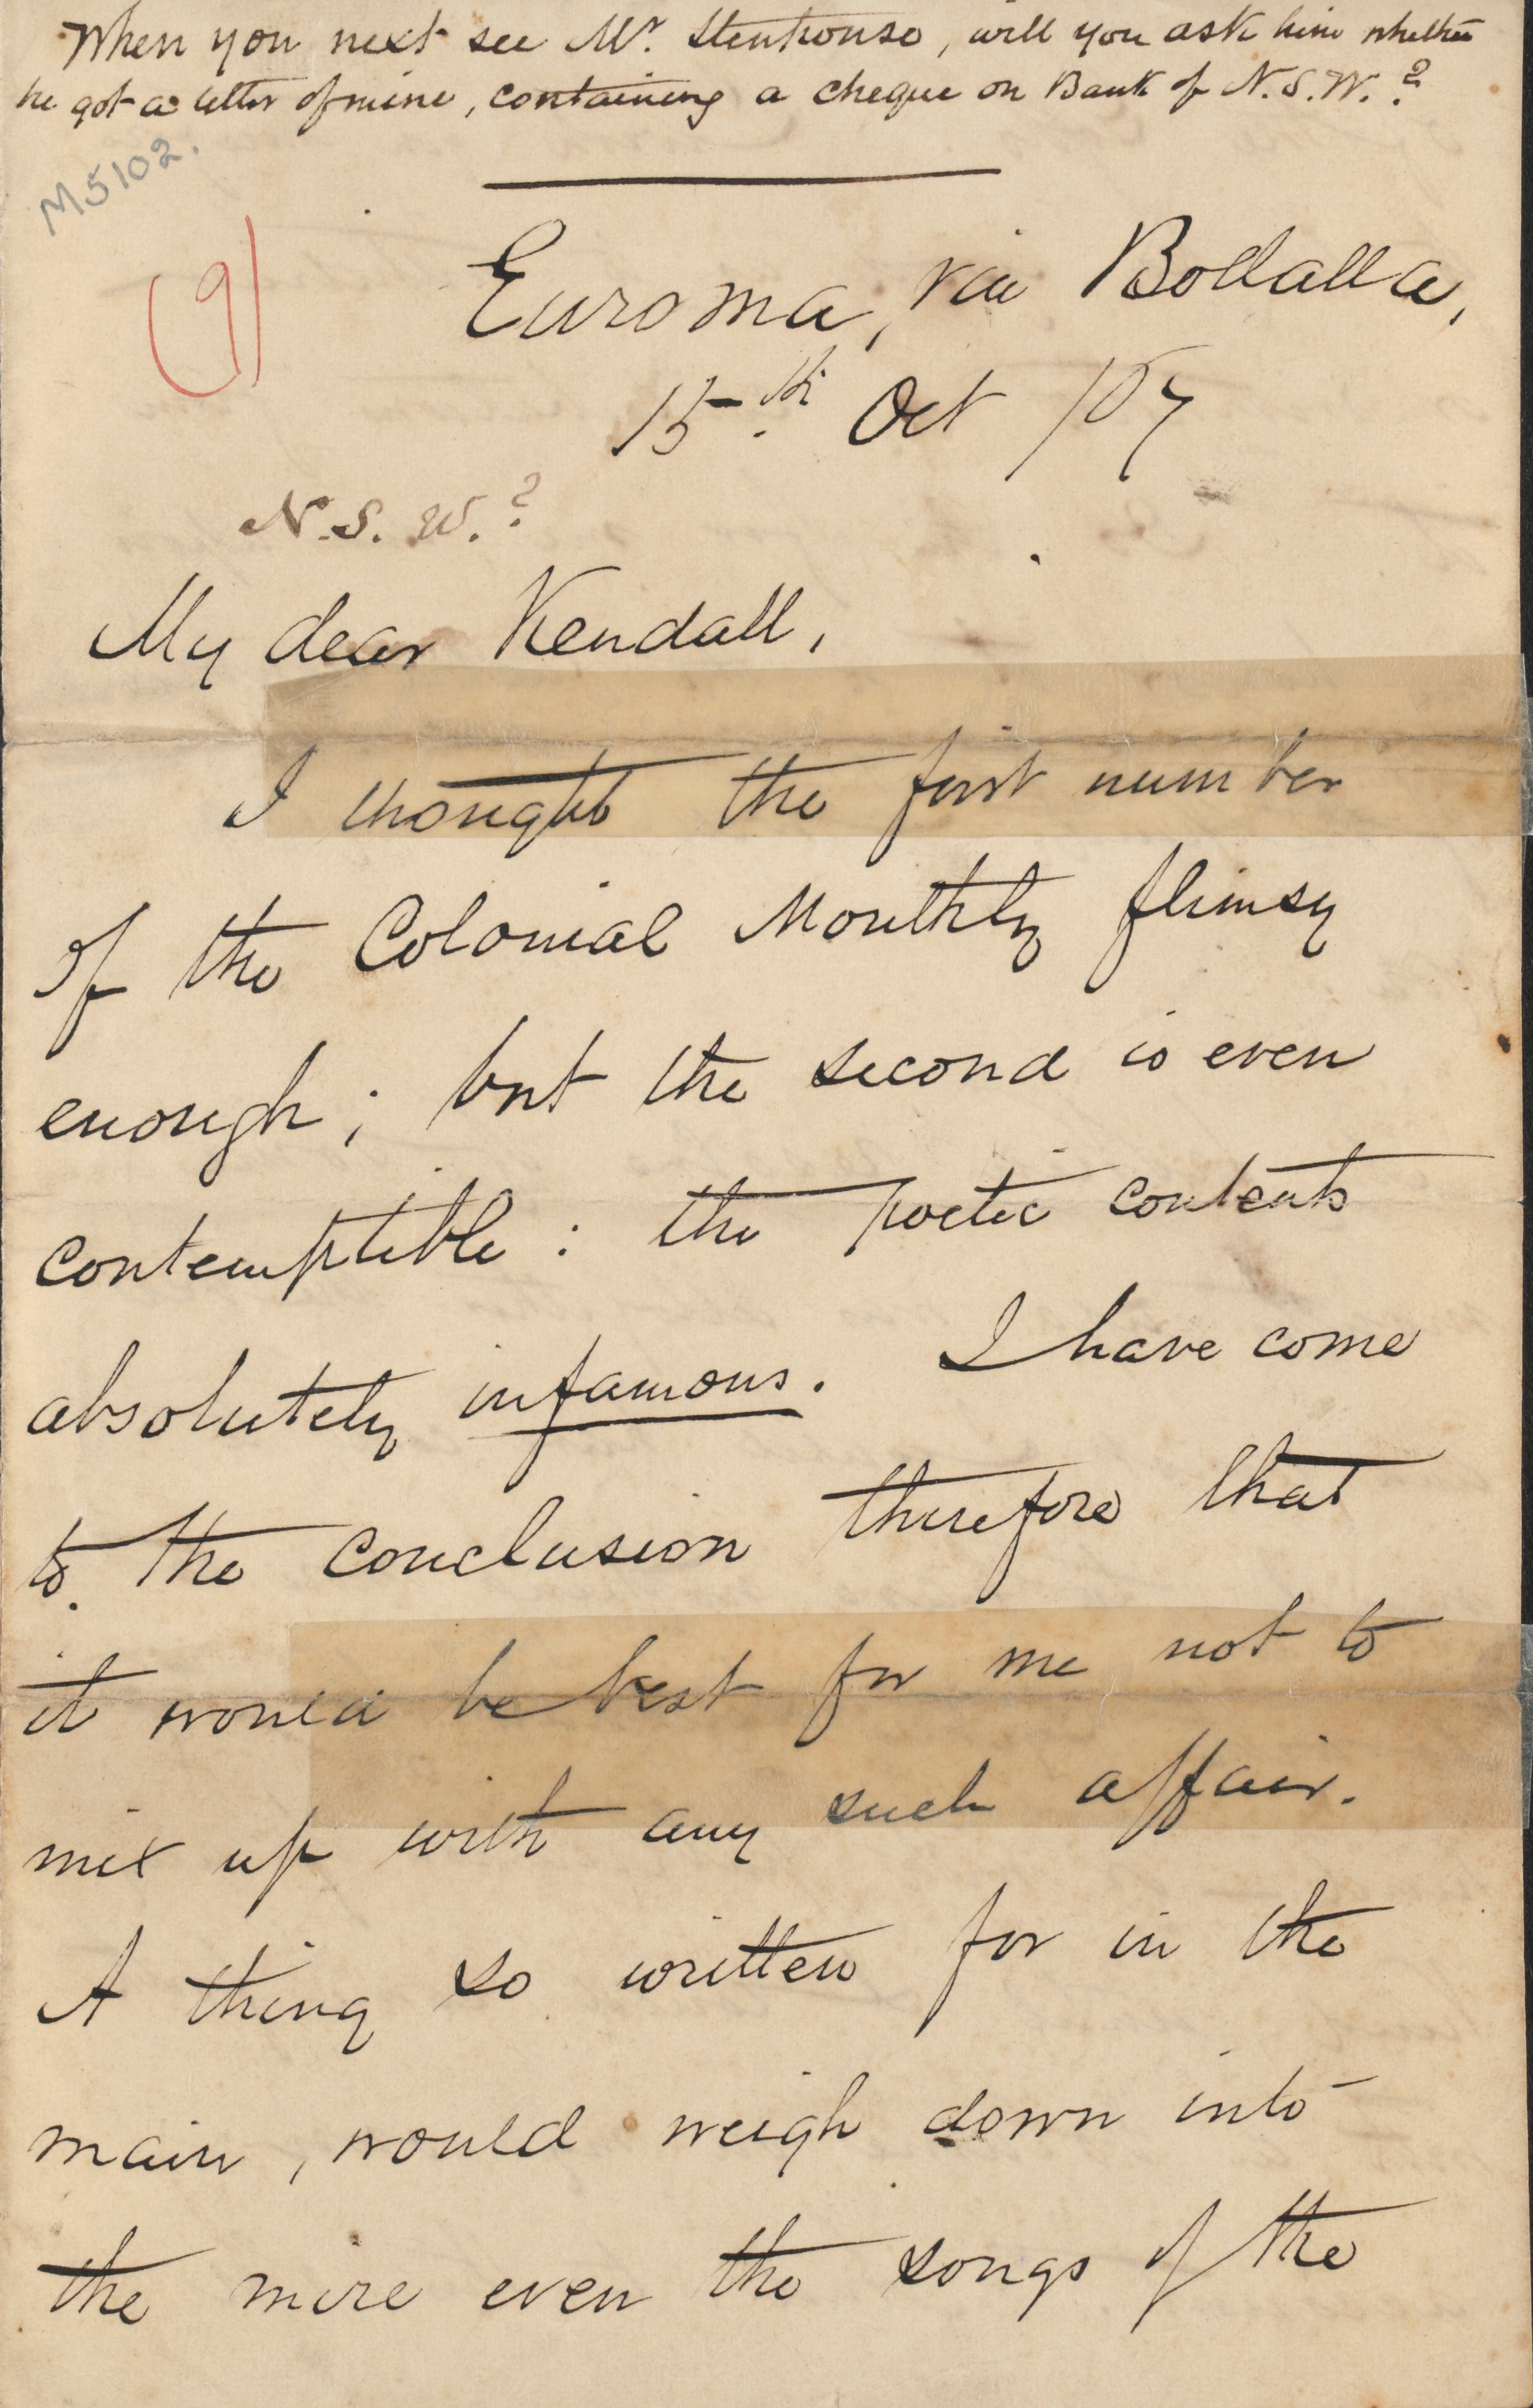 When you next see Mr. Stenhouse, will you ask him whether
he got a letter of mine, containing a cheque on Bank of N.S.W.?
M5102.
9
Euroma, via Bodalla,
15th. Oct /67
N.S.W.?
My dear Kendall,
I thought the first number
of the Colonial Monthly flimsy
enough; but the second is even
contemptible: the poetic contents
absolutely infamous. I have come
to the conclusion therefore that
it would be best for me not to
mix up with any such affair.
A thing so written for in the
main, would weigh down into
the mire even the songs of the